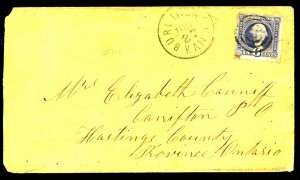 BURLINGTON
KAN.
Mrs Elizabeth Canniff
Canifton P O
Hastings County
Province Ontario